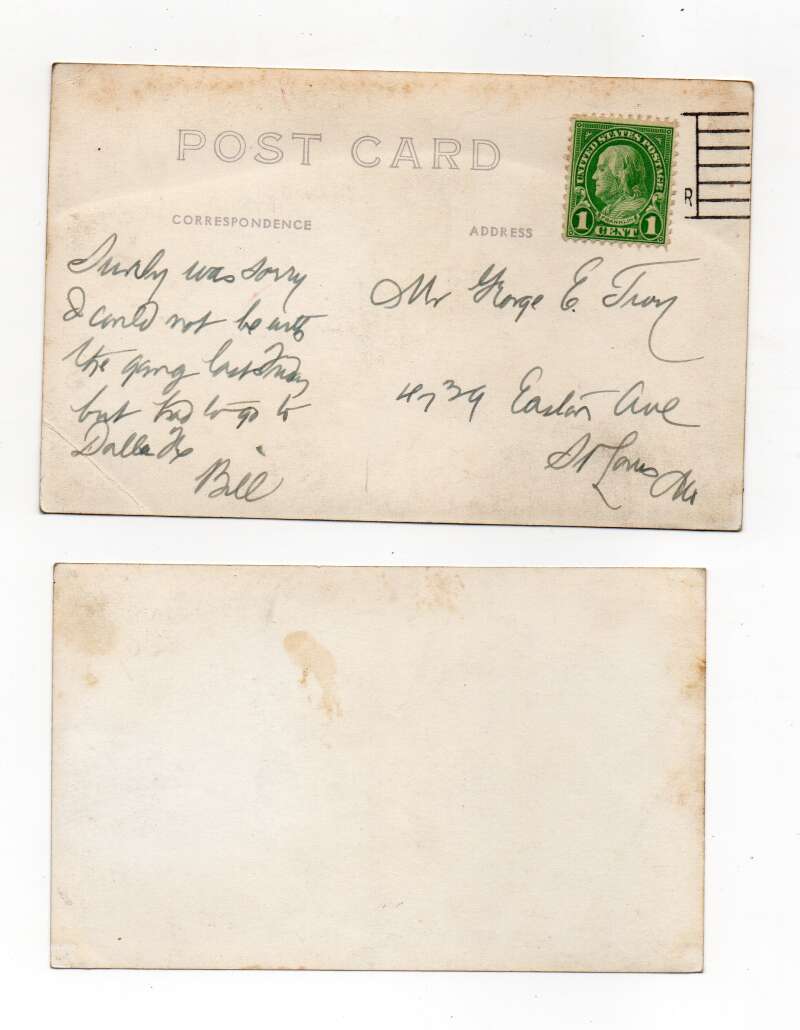 POST CARD
UNITED STATES POSTAGE
FRANKLIN
1 CENT 1
R
CORRESPONDENCE
ADDRESS
Surely was sorry
I could not be with
the gang last Friday
but had to go to
Dallas Tx
Bill
Mr George E. Troy
4739 Easton Ave
St Louis Mo